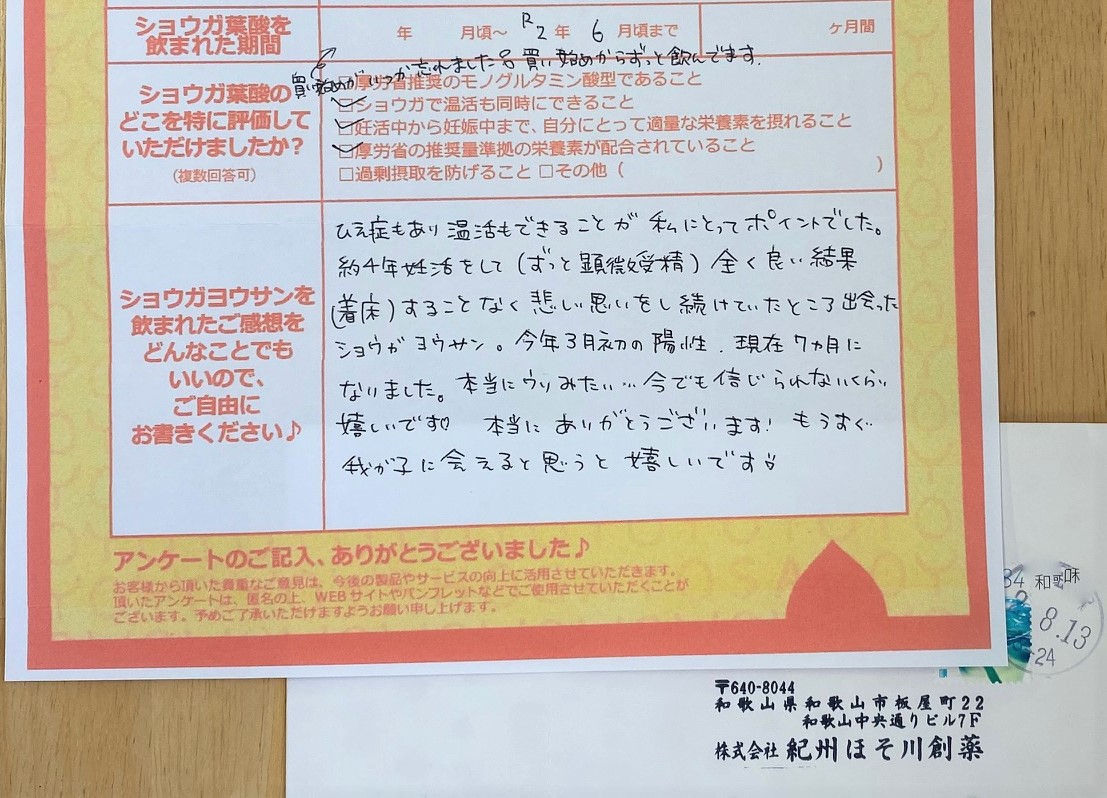 ショウガ葉酸を
飲まれた期間
年 月頃～ R2年 6月頃まで ヶ月間
買い始めがいつか忘れました 買い始めからずっと飲んでます。
ショウガ葉酸の
どこを特に評価して
いただけましたか？
（複数回答可）
□厚労省推奨のモノグルタミン酸型であること
☑ショウガで温活も同時にできること
☑妊活中から妊娠中まで、自分にとって適量な栄養素を摂れること
☑厚労省の推奨量準拠の栄養素が配合されていること
□過剰摂取を防げること □その他（ ）
ショウガヨウサンを
飲まれたご感想を
どんなことでも
いいので、
ご自由に
お書きください♪
ひえ症もあり温活もできることが私にとってポイントでした。
約4年妊活をして(ずっと顕微受精)全く良い結果
(着床)することなく悲しい思いをし続けていたところ出会った
ショウガヨウサン。今年3月初の陽性、現在7ヵ月に
なりました。本当にウソみたい…今でも信じられないくらい
嬉しいです♡ 本当にありがとうございます! もうすぐ
我が子に会えると思うと嬉しいです
アンケートのご記入、ありがとうございました♪
お客様から頂いた貴重なご意見は、今後の製品やサービスの向上に活用させていただきます。
頂いたアンケートは、匿名の上、WEBサイトやパンフレットなどでご使用させていただくことが
ございます。予めご了承いただけますようお願い申し上げます。
和歌
8.13
-24
〒640-8044
和歌山県和歌山市板屋町22
和歌山中央通りビル7F
株式会社 紀州ほそ川創薬